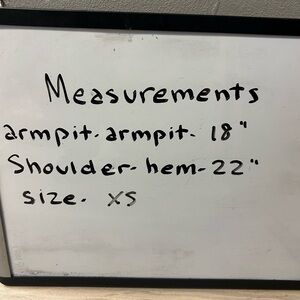 Measurements
armpit-armpit- 18"
Shoulder-hem-22"
size- XS